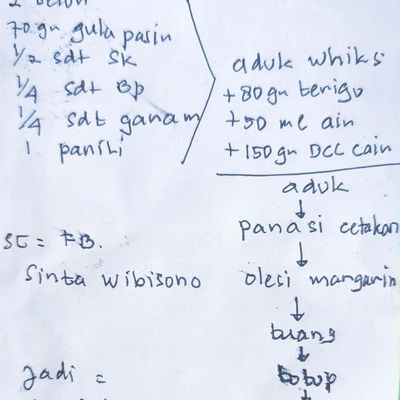 2 telur
70 gn gula pasin
1/2 sdt SK
1/4 sdt Bp
1/4 sdt ganam
1 panili
aduk whiks
+80gn terigu
+50 ml ain
+150gn DCC cain
aduk
panasi cetakan
olesi margarin
tuang
tutup
SC = FB.
Sinta wibisono
Jadi =